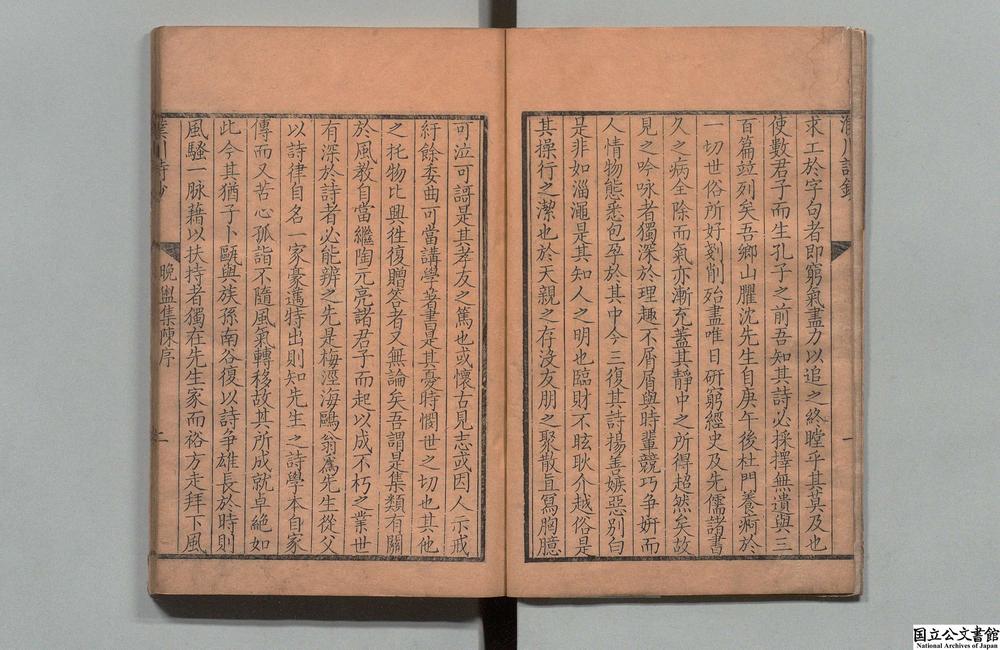 求工於字句者即窮氣盡力以追之終瞠乎其莫及也
使數君子而生孔子之前吾知其詩必採擇無遺與三
百篇竝列矣吾鄉山臞沈先生自庚午後杜門養痾於
一切世俗所好剗削殆盡唯日研窮經史及先儒諸書
久之病全除而氣亦漸充蓋其靜中之所得超然矣故
見之吟咏者獨深於理趣不屑屑與時輩競巧爭妍而
人情物態悉包孕於其中今三復其詩揚善嫉惡別白
是非如淄澠是其知人之明也臨財不眩耿介越俗是
其操行之潔也於天親之存沒友朋之聚散直寫胸臆
可泣可謌是其孝友之篤也或懷古見志或因人示戒
紆餘委曲可當講學著書是其憂時憫世之切也其他
之托物比興徃復贈答者又無論矣吾謂是集類有關
於風教自當繼陶元亮諸君子而起以成不朽之業世
有深於詩者必能辨之先是梅涇海鷗翁爲先生從父
以詩律自名一家豪邁特出則知先生之詩學本自家
傳而又苦心孤詣不隨風氣轉移故其所成就卓絶如
此今其猶子卜甌與族孫南谷復以詩爭雄長於時則
風騷一脉藉以扶持者獨在先生家而裕方走拜下風
川詩鈔
晚盥集陳序
二
国立公文書館
National Archives of Japan